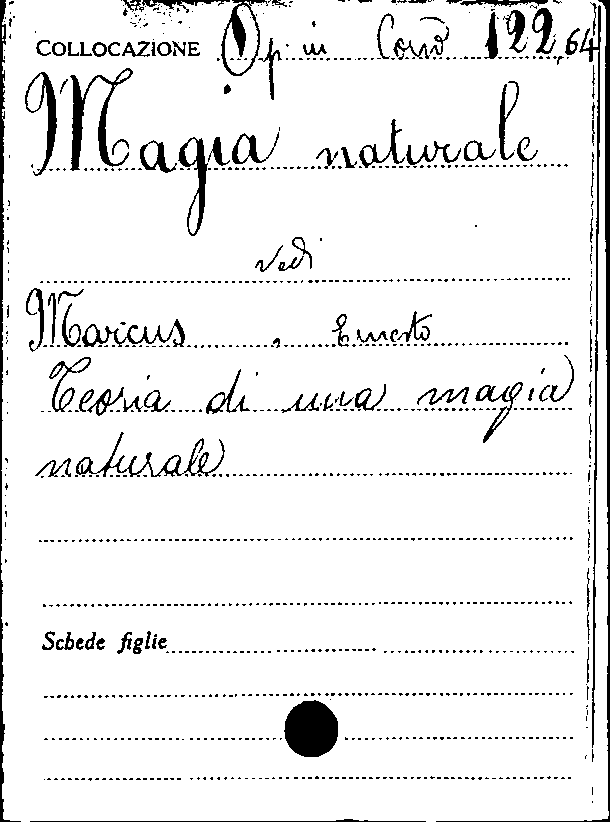 COLLOCAZIONE Op. in Corso 122,64
Magia naturale
vedi
Marcus, Ernesto
Teoria di una magia
naturale
Schede figlie